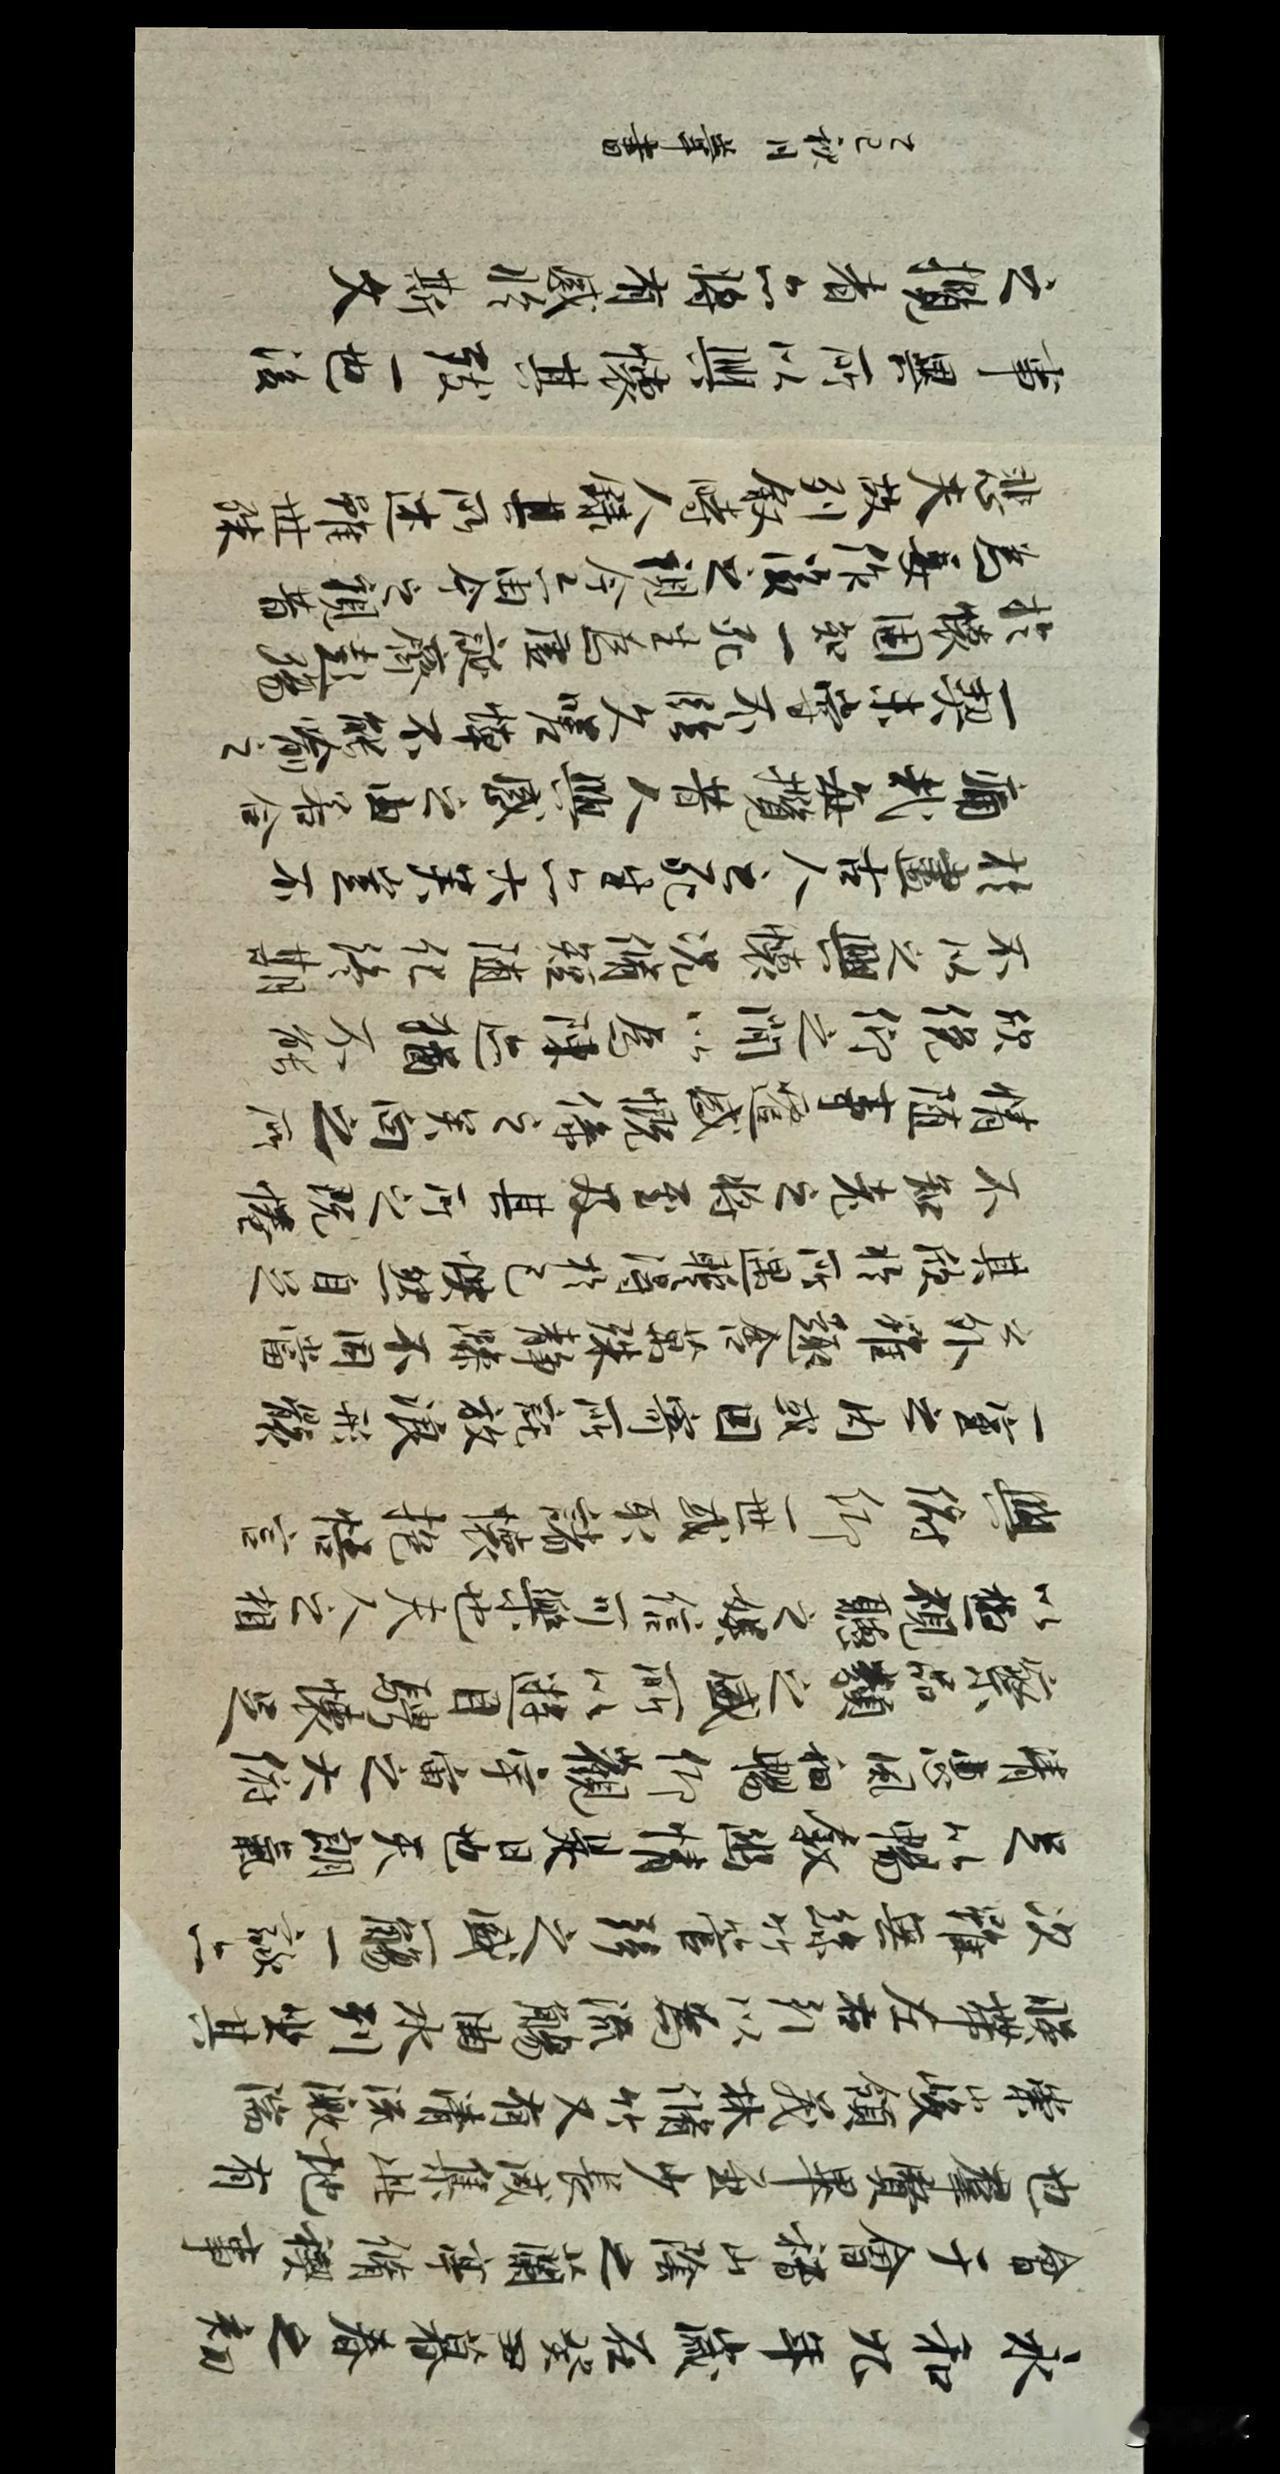 永和九年歲在癸丑暮春之初
會于會稽山陰之蘭亭脩禊事
也群賢畢至少長咸集此地有
崇山峻領茂林脩竹又有清流激湍
暎帶左右引以為流觴曲水列坐其
次雖無絲竹管弦之盛一觴一詠亦
足以暢敘幽情是日也天朗氣
清惠風和暢仰觀宇宙之大俯
察品類之盛所以遊目騁懷足
以極視聽之娛信可樂也夫人之相
與俯仰一世或取諸懷抱悟言
一室之內或因寄所託放浪形骸
之外雖趣舍萬殊靜躁不同當
其欣於所遇蹔得於己快然自足
不知老之將至及其所之既惓
情隨事遷感慨係之矣向之所
欣俛仰之間以為陳迹猶不能
不以之興懷況脩短隨化終期
於盡古人云死生亦大矣豈不
痛哉每攬昔人興感之由若合
一契未嘗不臨文嗟悼不能喻之
於懷固知一死生為虛誕齊彭殤
為妄作後之視今亦由今之視昔
悲夫故列敘時人錄其所述雖世殊
事異所以興懷其致一也後
之攬者亦將有感於斯文
乙巳秋月書